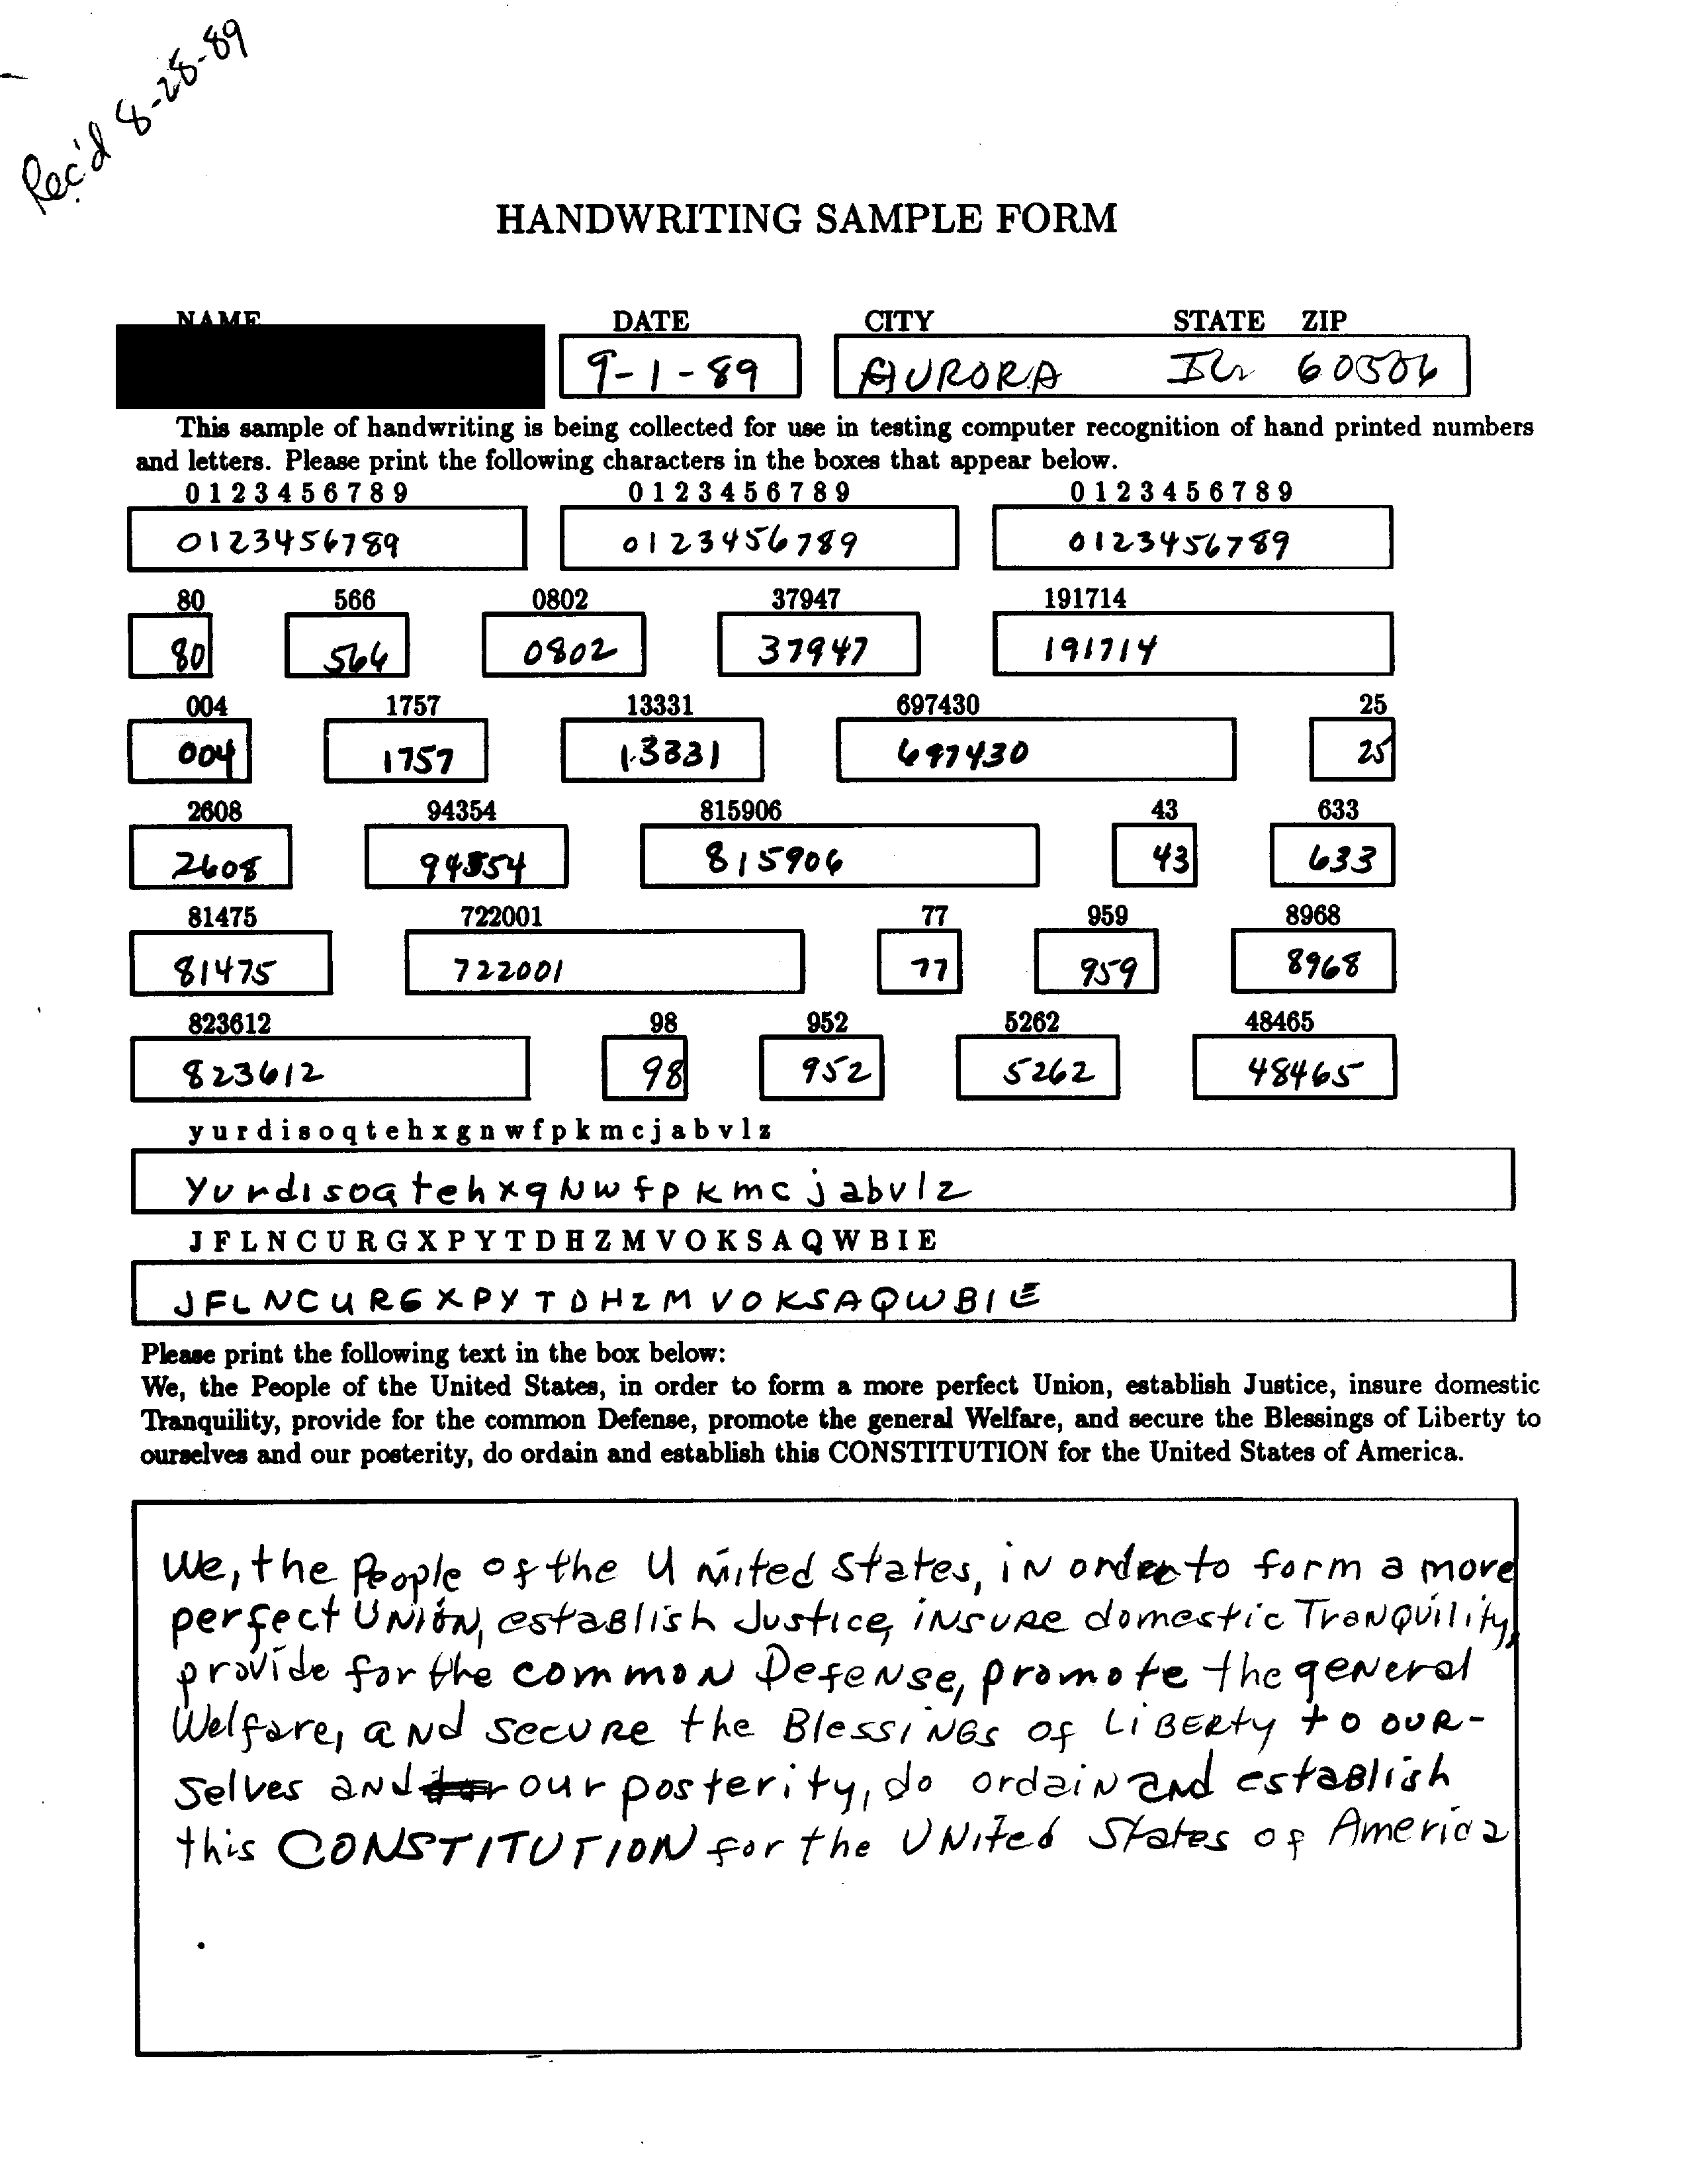 Rec'd 8-28-89
HANDWRITING SAMPLE FORM
NAME DATE CITY STATE ZIP
9-1-89 AURORA ILL 60506
This sample of handwriting is being collected for use in testing computer recognition of hand printed numbers
and letters. Please print the following characters in the boxes that appear below.
0 1 2 3 4 5 6 7 8 9 0 1 2 3 4 5 6 7 8 9 0 1 2 3 4 5 6 7 8 9
0123456789 0123456789 0123456789
80 566 0802 37947 191714
80 566 0802 37947 191714
004 1757 13331 697430 25
004 1757 13331 697430 25
2608 94354 815906 43 633
2608 94354 815906 43 633
81475 722001 77 959 8968
81475 722001 77 959 8968
823612 98 952 5262 48465
823612 98 952 5262 48465
y u r d i s o q t e h x g n w f p k m c j a b v l z
y u r d i s o q t e h x g N w f p k m c j a b v l z
J F L N C U R G X P Y T D H Z M V O K S A Q W B I E
J F L N C U R G X P Y T D H Z M V O K S A Q W B I E
Please print the following text in the box below:
We, the People of the United States, in order to form a more perfect Union, establish Justice, insure domestic
Tranquility, provide for the common Defense, promote the general Welfare, and secure the Blessings of Liberty to
ourselves and our posterity, do ordain and establish this CONSTITUTION for the United States of America.
We, the People of the United States, iN order to form a more
perfect UNiON, estaBlish Justice, iNSURE domestic TraNQuility,
provide for the commoN DefeNse, promote the geNeral
Welfare, aNd secuRe the BlessiNGs of LiBERty to OUR-
Selves aNd our posterity, do ordaiN and estaBlish
this CONSTITUTION for the UNited States of America